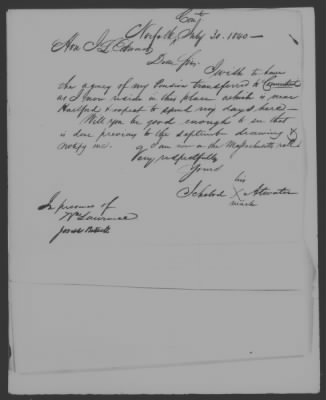 Cont
Norfolk, July 30. 1840 —
Hon J L Edwards
Dear Sir,
I wish to have
the agency of my Pension transferred to Connecticut
as I now reside in this place which is near
Hartford & expect to spend my days here —
Will you be good enough to see that
is done previous to the september drawing &
notify me. I am now on the Massachusetts roll
Very respectfully
Yours
his
Ichabod X Atwater
mark
In presence of
Wm Lawrence